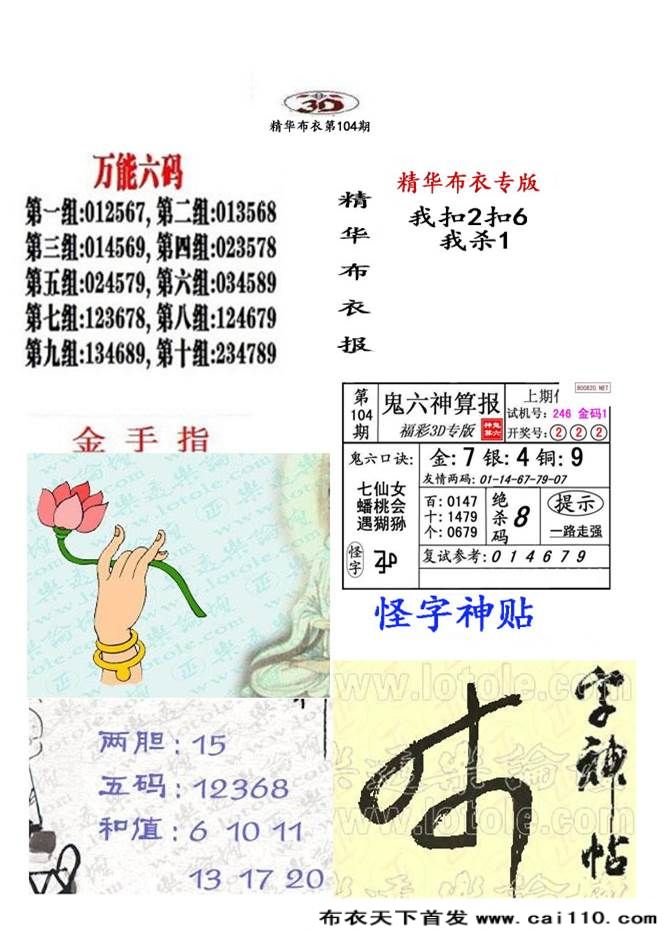 3D
精华布衣第104期
万能六码
第一组:012567,第二组:013568
第三组:014569,第四组:023578
第五组:024579,第六组:034589
第七组:123678,第八组:124679
第九组:134689,第十组:234789
精华布衣报
精华布衣专版
我扣2扣6
我杀1
第104期
鬼六神算报
福彩3D专版
神鬼算六
上期
800820.NET
试机号: 246 金码1
开奖号: 2 2 2
鬼六口诀:
七仙女
蟠桃会
遇猢狲
金:7 银:4 铜:9
友情两码: 01-14-67-79-07
百: 0147
十: 1479
个: 0679
绝杀码 8
提示
一路走强
怪字
复试参考: 0 1 4 6 7 9
金手指
两胆: 15
五码: 12368
和值: 6 10 11
13 17 20
怪字神贴
www.lotole.com
字神帖
布衣天下首发 www.cai110.com